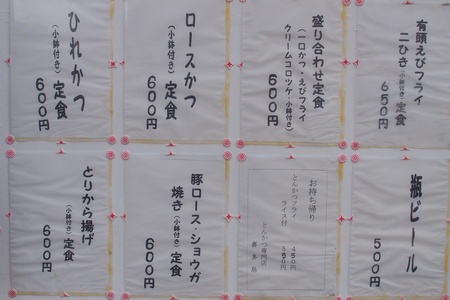 有頭えびフライ
二ひき(小鉢付き)定食
650円
盛り合わせ定食
(一口かつ・えびフライ
クリームコロッケ・小鉢付き)
600円
ロースかつ
(小鉢付き)定食
600円
ひれかつ
(小鉢付き)定食
600円
瓶ビール
500円
お持ち帰り
とんかつフライ 450円
ライス付 550円
とんかつ専門店
喜多島
豚ロース・ショウガ
焼き(小鉢付き)定食
600円
とりから揚げ
(小鉢付き)定食
600円